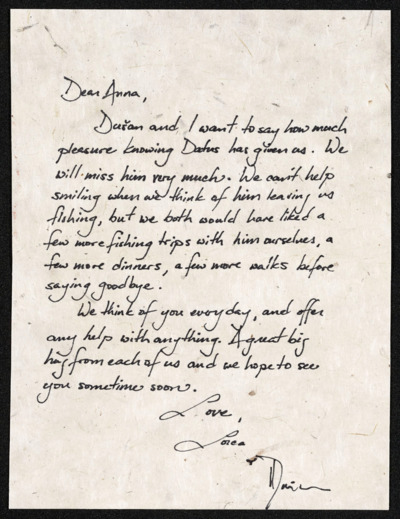 Dear Anna,
Dušan and I want to say how much
pleasure knowing Datus has given us. We
will miss him very much. We can't help
smiling when we think of him leaving us
fishing, but we both would have liked a
few more fishing trips with him ourselves, a
few more dinners, a few more walks before
saying goodbye.
We think of you everyday, and offer
any help with anything. A great big
hug from each of us and we hope to see
you sometime soon.
Love,
Lorea
Dušan